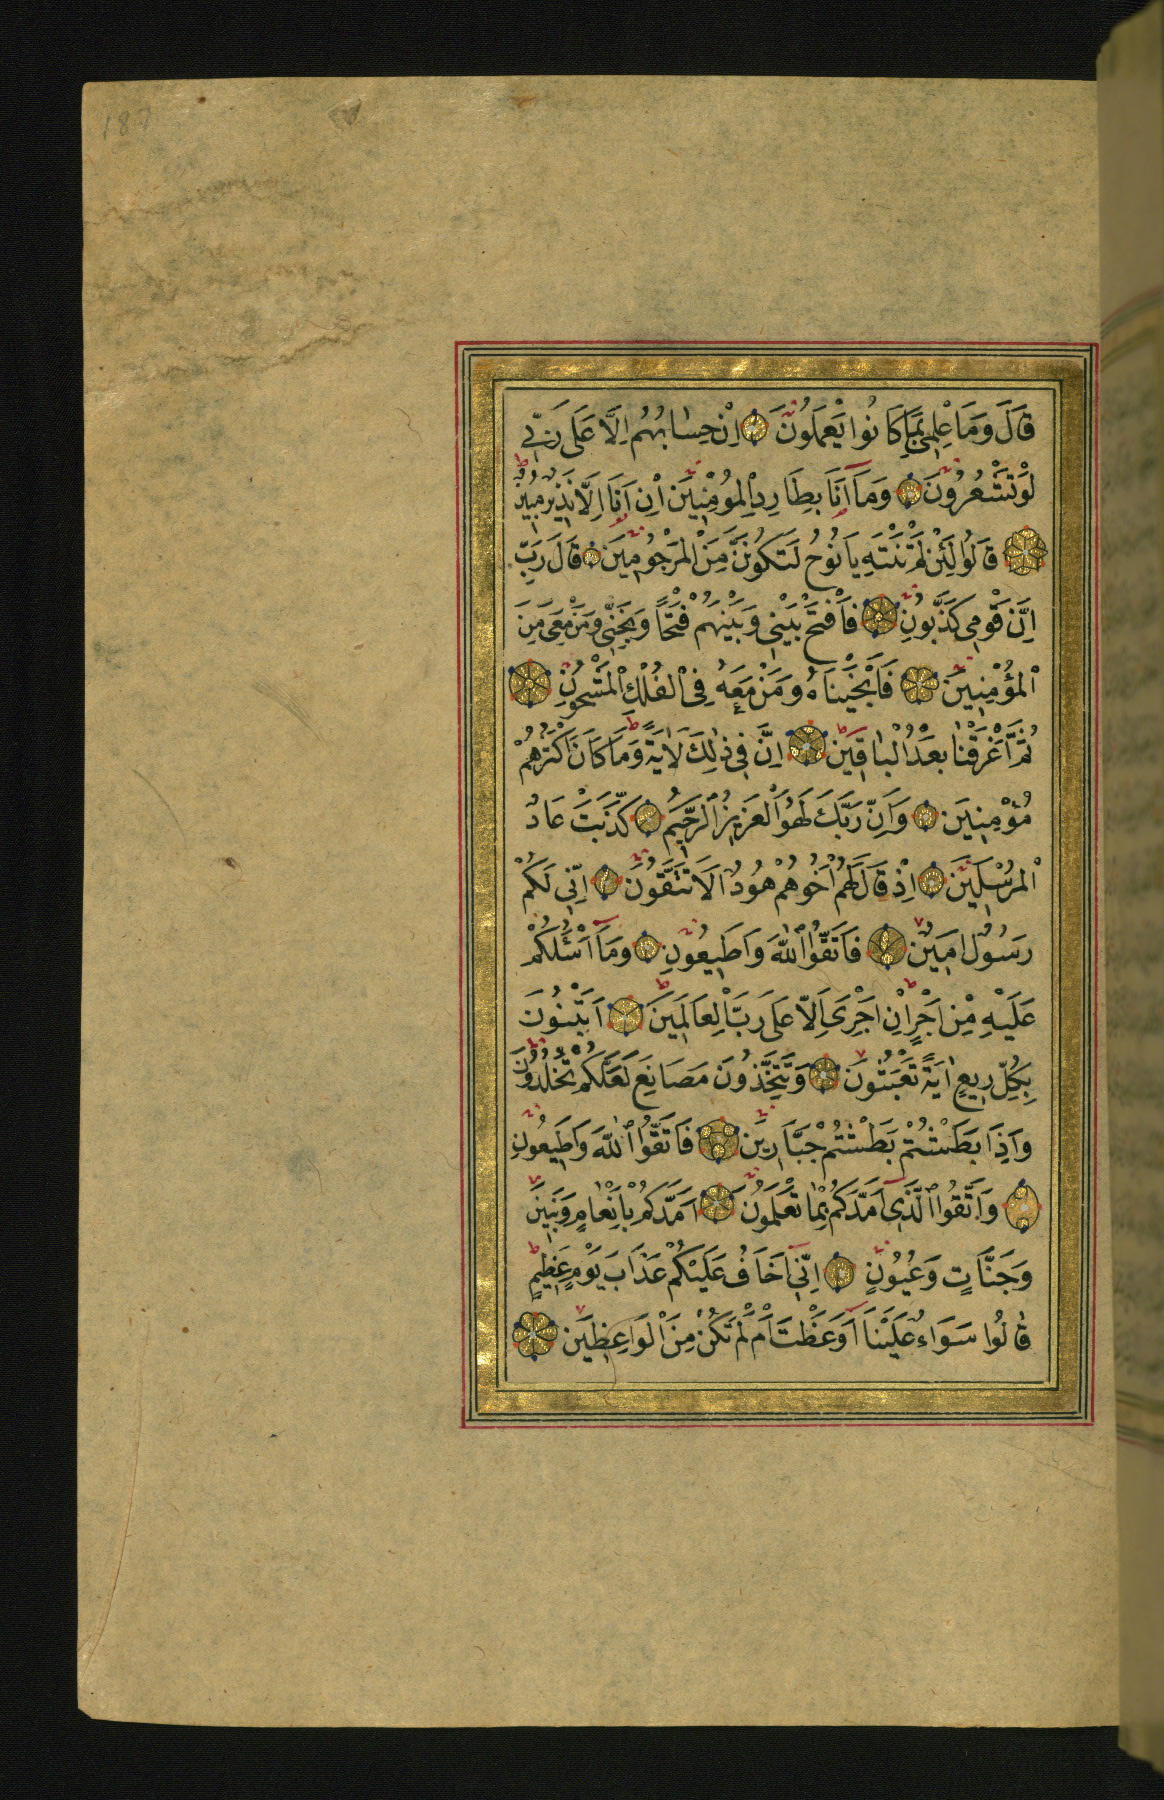 187
قَالَ وَمَا عِلْمِي بِمَا كَانُوا يَعْمَلُونَ اِنْ حِسَابُهُمْ اِلَّا عَلَى رَبِّي
لَوْ تَشْعُرُونَ وَمَا اَنَا بِطَارِدِ الْمُؤْمِنِينَ اِنْ اَنَا اِلَّا نَذِيرٌ مُبِينٌ
قَالُوا لَئِنْ لَمْ تَنْتَهِ يَا نُوحُ لَتَكُونَنَّ مِنَ الْمَرْجُومِينَ قَالَ رَبِّ
اِنَّ قَوْمِي كَذَّبُونِ فَافْتَحْ بَيْنِي وَبَيْنَهُمْ فَتْحًا وَنَجِّنِي وَمَنْ مَعِيَ مِنَ
الْمُؤْمِنِينَ فَاَنْجَيْنَاهُ وَمَنْ مَعَهُ فِي الْفُلْكِ الْمَشْحُونِ
ثُمَّ اَغْرَقْنَا بَعْدُ الْبَاقِينَ اِنَّ فِي ذٰلِكَ لَاٰيَةً وَمَا كَانَ اَكْثَرُهُمْ
مُؤْمِنِينَ وَاِنَّ رَبَّكَ لَهُوَ الْعَزِيزُ الرَّحِيمُ كَذَّبَتْ عَادٌ
الْمُرْسَلِينَ اِذْ قَالَ لَهُمْ اَخُوهُمْ هُودٌ اَلَا تَتَّقُونَ اِنِّي لَكُمْ
رَسُولٌ اَمِينٌ فَاتَّقُوا اللّٰهَ وَاَطِيعُونِ وَمَا اَسْـَٔلُكُمْ
عَلَيْهِ مِنْ اَجْرٍ اِنْ اَجْرِيَ اِلَّا عَلَى رَبِّ الْعَالَمِينَ اَتَبْنُونَ
بِكُلِّ رِيعٍ اٰيَةً تَعْبَثُونَ وَتَتَّخِذُونَ مَصَانِعَ لَعَلَّكُمْ تَخْلُدُونَ
وَاِذَا بَطَشْتُمْ بَطَشْتُمْ جَبَّارِينَ فَاتَّقُوا اللّٰهَ وَاَطِيعُونِ
وَاتَّقُوا الَّذِي اَمَدَّكُمْ بِمَا تَعْلَمُونَ اَمَدَّكُمْ بِاَنْعَامٍ وَبَنِينَ
وَجَنَّاتٍ وَعُيُونٍ اِنِّي اَخَافُ عَلَيْكُمْ عَذَابَ يَوْمٍ عَظِيمٍ
قَالُوا سَوَاءٌ عَلَيْنَا اَوَعَظْتَ اَمْ لَمْ تَكُنْ مِنَ الْوَاعِظِينَ